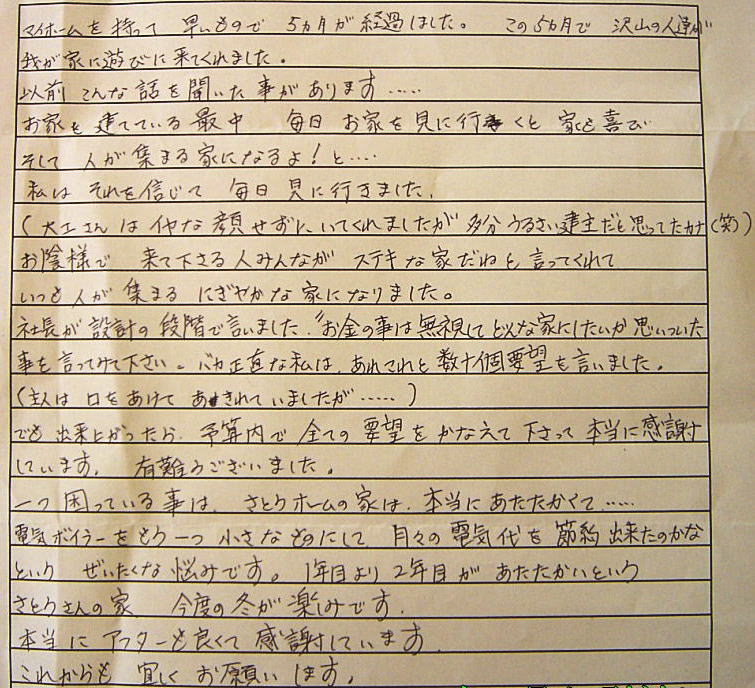 マイホームを持って 早いもので 5ヵ月が経過しました。 この5ヵ月で 沢山の人達が
我が家に遊びに来てくれました。
以前 こんな話を聞いた事があります……
お家を建てている最中 毎日 お家を見に行くと 家も喜び
そして 人が集まる家になるよ！と……
私は それを信じて 毎日見に行きました。
(大工さんは イヤな顔せずに、いてくれましたが 多分うるさい建主だと思ってたカナ(笑)
お陰様で 来て下さる人みんなが ステキな家だねと言ってくれて
いつも人が集まる にぎやかな家になりました。
社長が設計の段階で言いました、"お金の事は無視してどんな家にしたいか思いついた
事を言ってみて下さい。バカ正直な私は、あれこれと数十個要望を言いました。
(主人は口をあけて あきれていましたが……)
でも出来上がったら、予算内で全ての要望をかなえて下さって本当に感謝
しています。 有難うございました。
一つ困っている事は、さとうホームの家は、本当にあたたかくて……
電気ボイラーをもう一つ小さなものにして 月々の電気代を節約出来たのかな
という ぜいたくな悩みです。1年目より2年目があたたかいという
さとうさんの家 今度の冬が楽しみです。
本当に アフターも良くて感謝しています
これからも 宜しくお願いします。